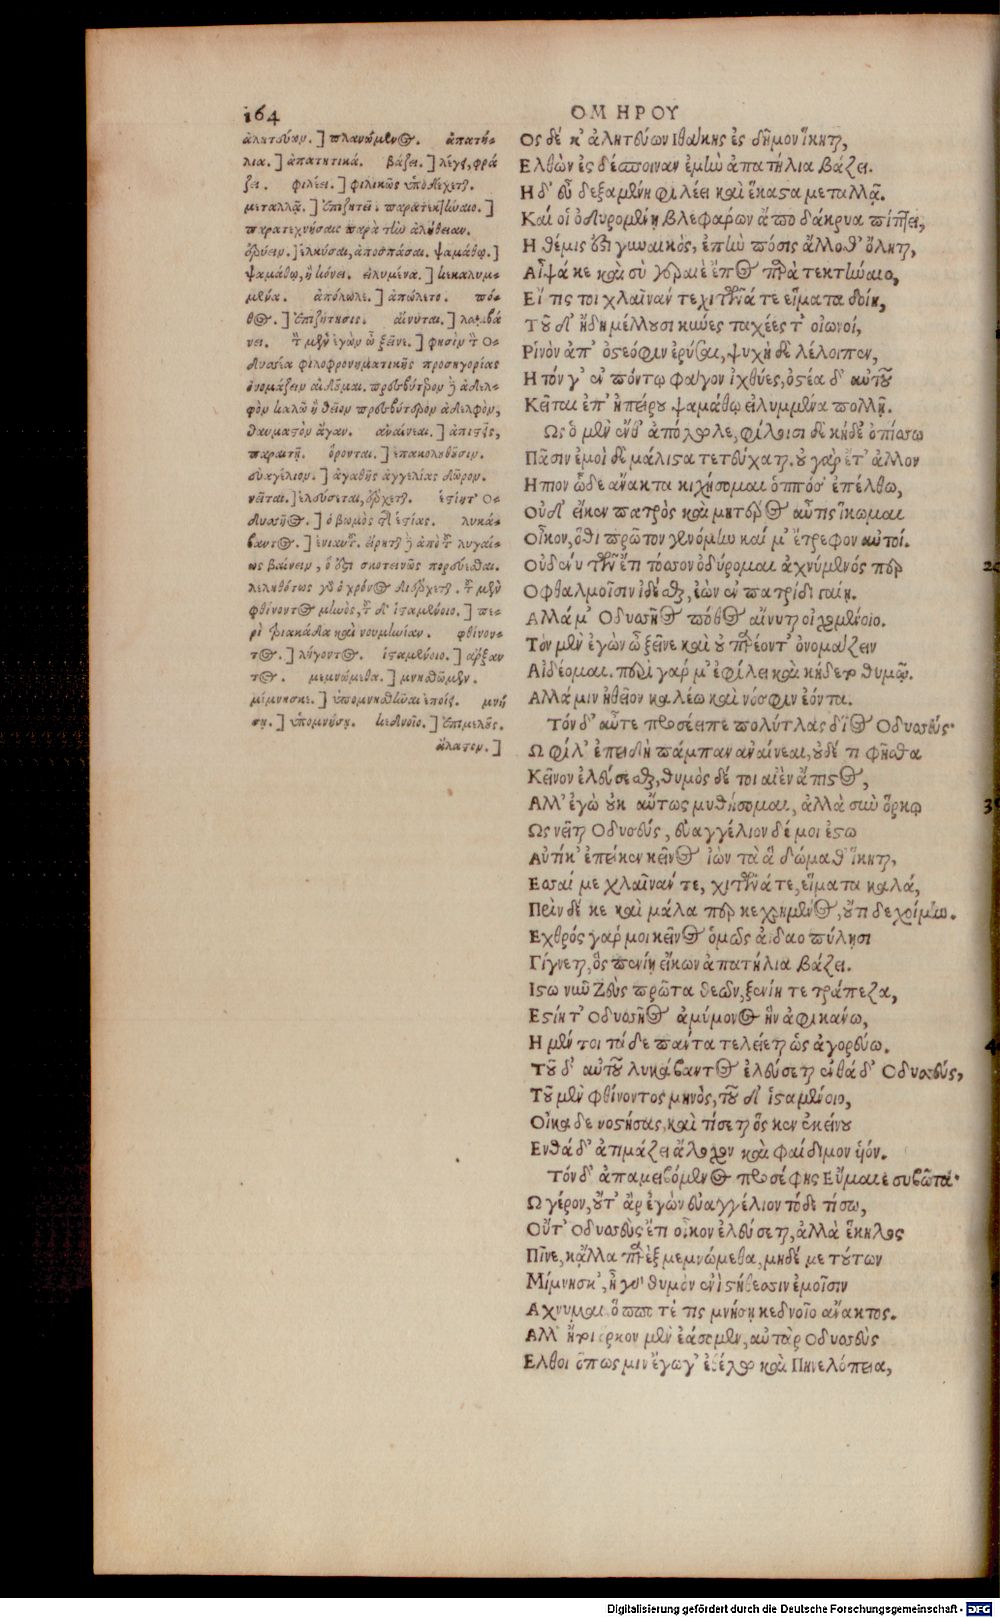 164
ΟΜΗΡΟΥ
ἀλητεύων.] πλανώμενος. ἀπατή-
λια.] ἀπατητικά. βάζει.] λέγει, φρά
ζει. φιλέει.] φιλικῶς ὑποδέχεται.
μεταλλᾷ.] ἐπιζητεῖ. παρατεκτήναιο.]
παρατεχνήσαις παρὰ τὴν ἀλήθειαν.
ἐρύειν.] ἑλκύσαι, ἀποσπάσαι. ψαμάθῳ.]
ψαμάθῳ, ἢ κόνει. εἰλυμένα.] κεκαλυμ-
μένα. ἀπόλωλε.] ἀπώλετο. πό-
θος.] ἐπιζήτησις. αἴνυται.] λαμβά
νει. τὸν μὲν ἐγὼν ὦ ξεῖνε.] φησὶν τὸν Ο-
δυσσέα φιλοφρονηματικῆς προσηγορίας
ὀνομάζειν αἰδοῦμαι. πρεσβύτερον ἢ ἀδελ-
φὸν καλῶ ἢ θεῖον πρεσβύτερον ἀδελφὸν,
θαυμαστὸν ἄγαν. ἀναίνεαι.] ἀπιστεῖς,
παραιτῇ. ὄρονται.] ἐπακολουθήσιν.
εὐαγέλιον.] ἀγαθῆς ἀγγελίας δῶρον.
νεῖται.] ἐλεύσεται, ἔρχεται. ἑστίητ' Ο-
δυσῆος.] ὁ βωμὸς τῆς ἑστίας. λυκά-
βαντος.] ἐνιαυτοῦ. εἴρηται ἢ ἀπὸ τοῦ λυγαί-
ως βαίνειν, ὅ ἐστι σκοτεινῶς πορεύεσθαι.
λεληθότως γὰρ ὁ χρόνος διέρχεται. τοῦ μὲν
φθίνοντος μηνὸς, τοῦ δ' ἱσταμένοιο.] πε-
ρὶ τριακάδα καὶ νουμηνίαν. φθίνον-
τος.] λήγοντος. ἱσταμένοιο.] ἄρξαν
τος. μεμνώμεθα.] μνησθῶμεν.
μίμνησκε.] ὑπομνησθῆναι ἐποίει. μνή
σῃ.] ὑπομνήσῃ. κεδνοῖο.] ἐπιμελοῦς.
ἄλαστον.]
Ος δέ κ' ἀλητεύων Ιθάκης ἐς δῆμον ἵκηται,
Ελθὼν ἐς δέσποιναν ἐμὴν ἀπατήλια βάζει.
Η δ' εὖ δεξαμένη φιλέει καὶ ἕκαστα μεταλλᾷ.
Καί οἱ ὀδυρομένῃ βλεφάρων ἄπο δάκρυα πίπτει,
Η θέμις ἐστὶ γυναικὸς, ἐπὴν πόσις ἄλλοθ' ὄληται,
Αἶψά κε καὶ σὺ γεραιὲ ἔπος παρατεκτήναιο,
Εἴ τις τοι χλαῖνάν τε χιτῶνά τε εἵματα δοίη,
Τοῦ δ' ἤδη μέλλουσι κύνες ταχέες τ' οἰωνοί,
Ρινὸν ἀπ' ὀστεόφιν ἐρύσαι, ψυχὴ δὲ λέλοιπεν,
Η τόν γ' ἐν πόντῳ φάγον ἰχθύες, ὀστέα δ' αὐτοῦ
Κεῖται ἐπ' ἠπείρου ψαμάθῳ εἰλυμμένα πολλῇ.
Ως ὁ μὲν ἔνθ' ἀπόλωλε, φίλοισι δὲ κήδε' ὀπίσσω
Πᾶσιν ἐμοὶ δὲ μάλιστα τετεύχαται. οὐ γὰρ ἔτ' ἄλλον
Ηπιον ὧδε ἄνακτα κιχήσομαι ὁππόσ' ἐπέλθω,
Οὐδ' εἴκεν πατρὸς καὶ μητέρος αὖτις ἵκωμαι
Οἶκον, ὅθι πρῶτον γενόμην καί μ' ἔτρεφον αὐτοί.
Οὐδ' ἔνυ τῶν ἔτι τόσσον ὀδύρομαι ἀχνύμενός περ
Οφθαλμοῖσιν ἰδέσθαι, ἐὼν ἐν πατρίδι γαίῃ.
Αλλά μ' Οδυσῆος πόθος αἴνυται οἰχομένοιο.
Τὸν μὲν ἐγὼν ὦ ξεῖνε καὶ οὐ παρέοντ' ὀνομάζειν
Αἰδέομαι. περὶ γάρ μ' ἐφίλει καὶ κήδετο θυμῷ.
Αλλά μιν ἠθεῖον καλέω καὶ νόσφιν ἐόντα.
Τόν δ' αὖτε προσέειπε πολύτλας δῖος Οδυσσεύς·
Ω φίλ' ἐπειδὴ πάμπαν ἀναίνεαι, οὐδέ τι φῆσθα
Κεῖνον ἐλεύσεσθαι, θυμὸς δέ τοι αἰὲν ἄπιστος,
Αλλ' ἐγὼ οὐκ αὔτως μυθήσομαι, ἀλλὰ σὺν ὅρκῳ
Ως νεῖται Οδυσεύς, εὐαγγέλιον δέ μοι ἔστω
Αὐτίκ' ἐπεί κεν κεῖνος ἰὼν τὰ ἃ δώμαθ' ἵκηται,
Εσσαί με χλαῖνάν τε, χιτῶνά τε, εἵματα καλά,
Πρὶν δέ κε καὶ μάλα περ κεχρημένος, οὔτι δεχοίμην.
Εχθρός γάρ μοι κεῖνος ὁμῶς ἀΐδαο πύλῃσι
Γίγνεται, ὃς πενίῃ εἴκων ἀπατήλια βάζει.
Ιστω νῦν Ζεὺς πρῶτα θεῶν, ξενίη τε τράπεζα,
Εστίη τ' Οδυσῆος ἀμύμονος ἣν ἀφικάνω,
Η μέν τοι τάδε πάντα τελείεται ὡς ἀγορεύω.
Τοῦ δ' αὐτοῦ λυκάβαντος ἐλεύσεται ἐνθάδ' Οδυσσεύς,
Τοῦ μὲν φθίνοντος μηνὸς, τοῦ δ' ἱσταμένοιο,
Οἴκαδε νοστήσας, καὶ τίσεται ὅς κεν ἐκείνου
Ενθάδ' ἀτιμάζει ἄλοχον καὶ φαίδιμον υἱόν.
Τόν δ' ἀπαμειβόμενος προσέφης Εὔμαιε συβῶτα·
Ω γέρον, οὔτ' ἂρ ἐγὼν εὐαγγέλιον τόδε τίσω,
Οὔτ' Οδυσσεὺς ἔτι οἶκον ἐλεύσεται, ἀλλὰ ἕκηλος
Πῖνε, κἄλλα παρὲξ μεμνώμεθα, μηδέ με τούτων
Μίμνησκ', ἦ γὰρ θυμὸν ἐνὶ στήθεσσιν ἐμοῖσιν
Αχνυμαι, ὅπποτέ τις μνήσῃ κεδνοῖο ἄνακτος.
Αλλ' ἤτοι ὅρκον μὲν ἐάσομεν, αὐτὰρ Οδυσσεὺς
Ελθοι ὅπως μιν ἔγωγ' ἐθέλω καὶ Πηνελόπεια,
Digitalisierung gefördert durch die Deutsche Forschungsgemeinschaft - DFG